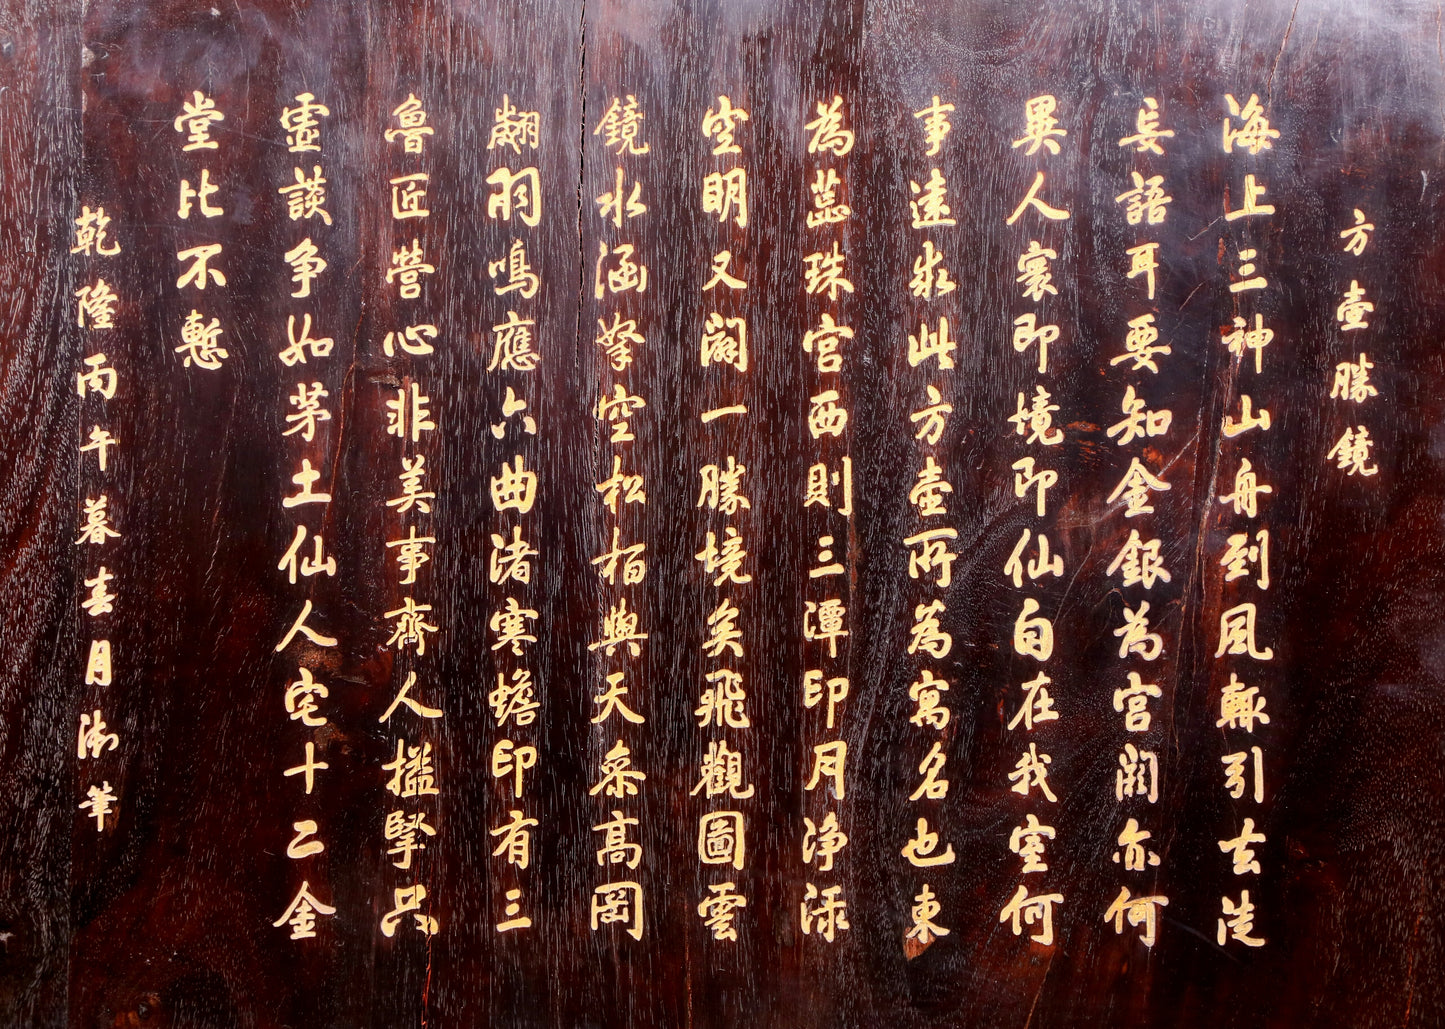 方壺勝鏡
海上三神山舟到風輙引去徒
妄語耳要知金銀為宮闕亦何
異人寰即境即仙自在我室何
事遠求此方壺所為寓名也東
為蕊珠宮西則三潭印月净渌
空明又闢一勝境矣飛觀圖雲
鏡水涵拏空松栢與天參高岡
翽羽鳴應六曲渚寒蟾印有三
魯匠營心非美事齊人搤掔只
虛談争如茅土仙人宅十二金
堂比不慙
乾隆丙午暮春月御筆